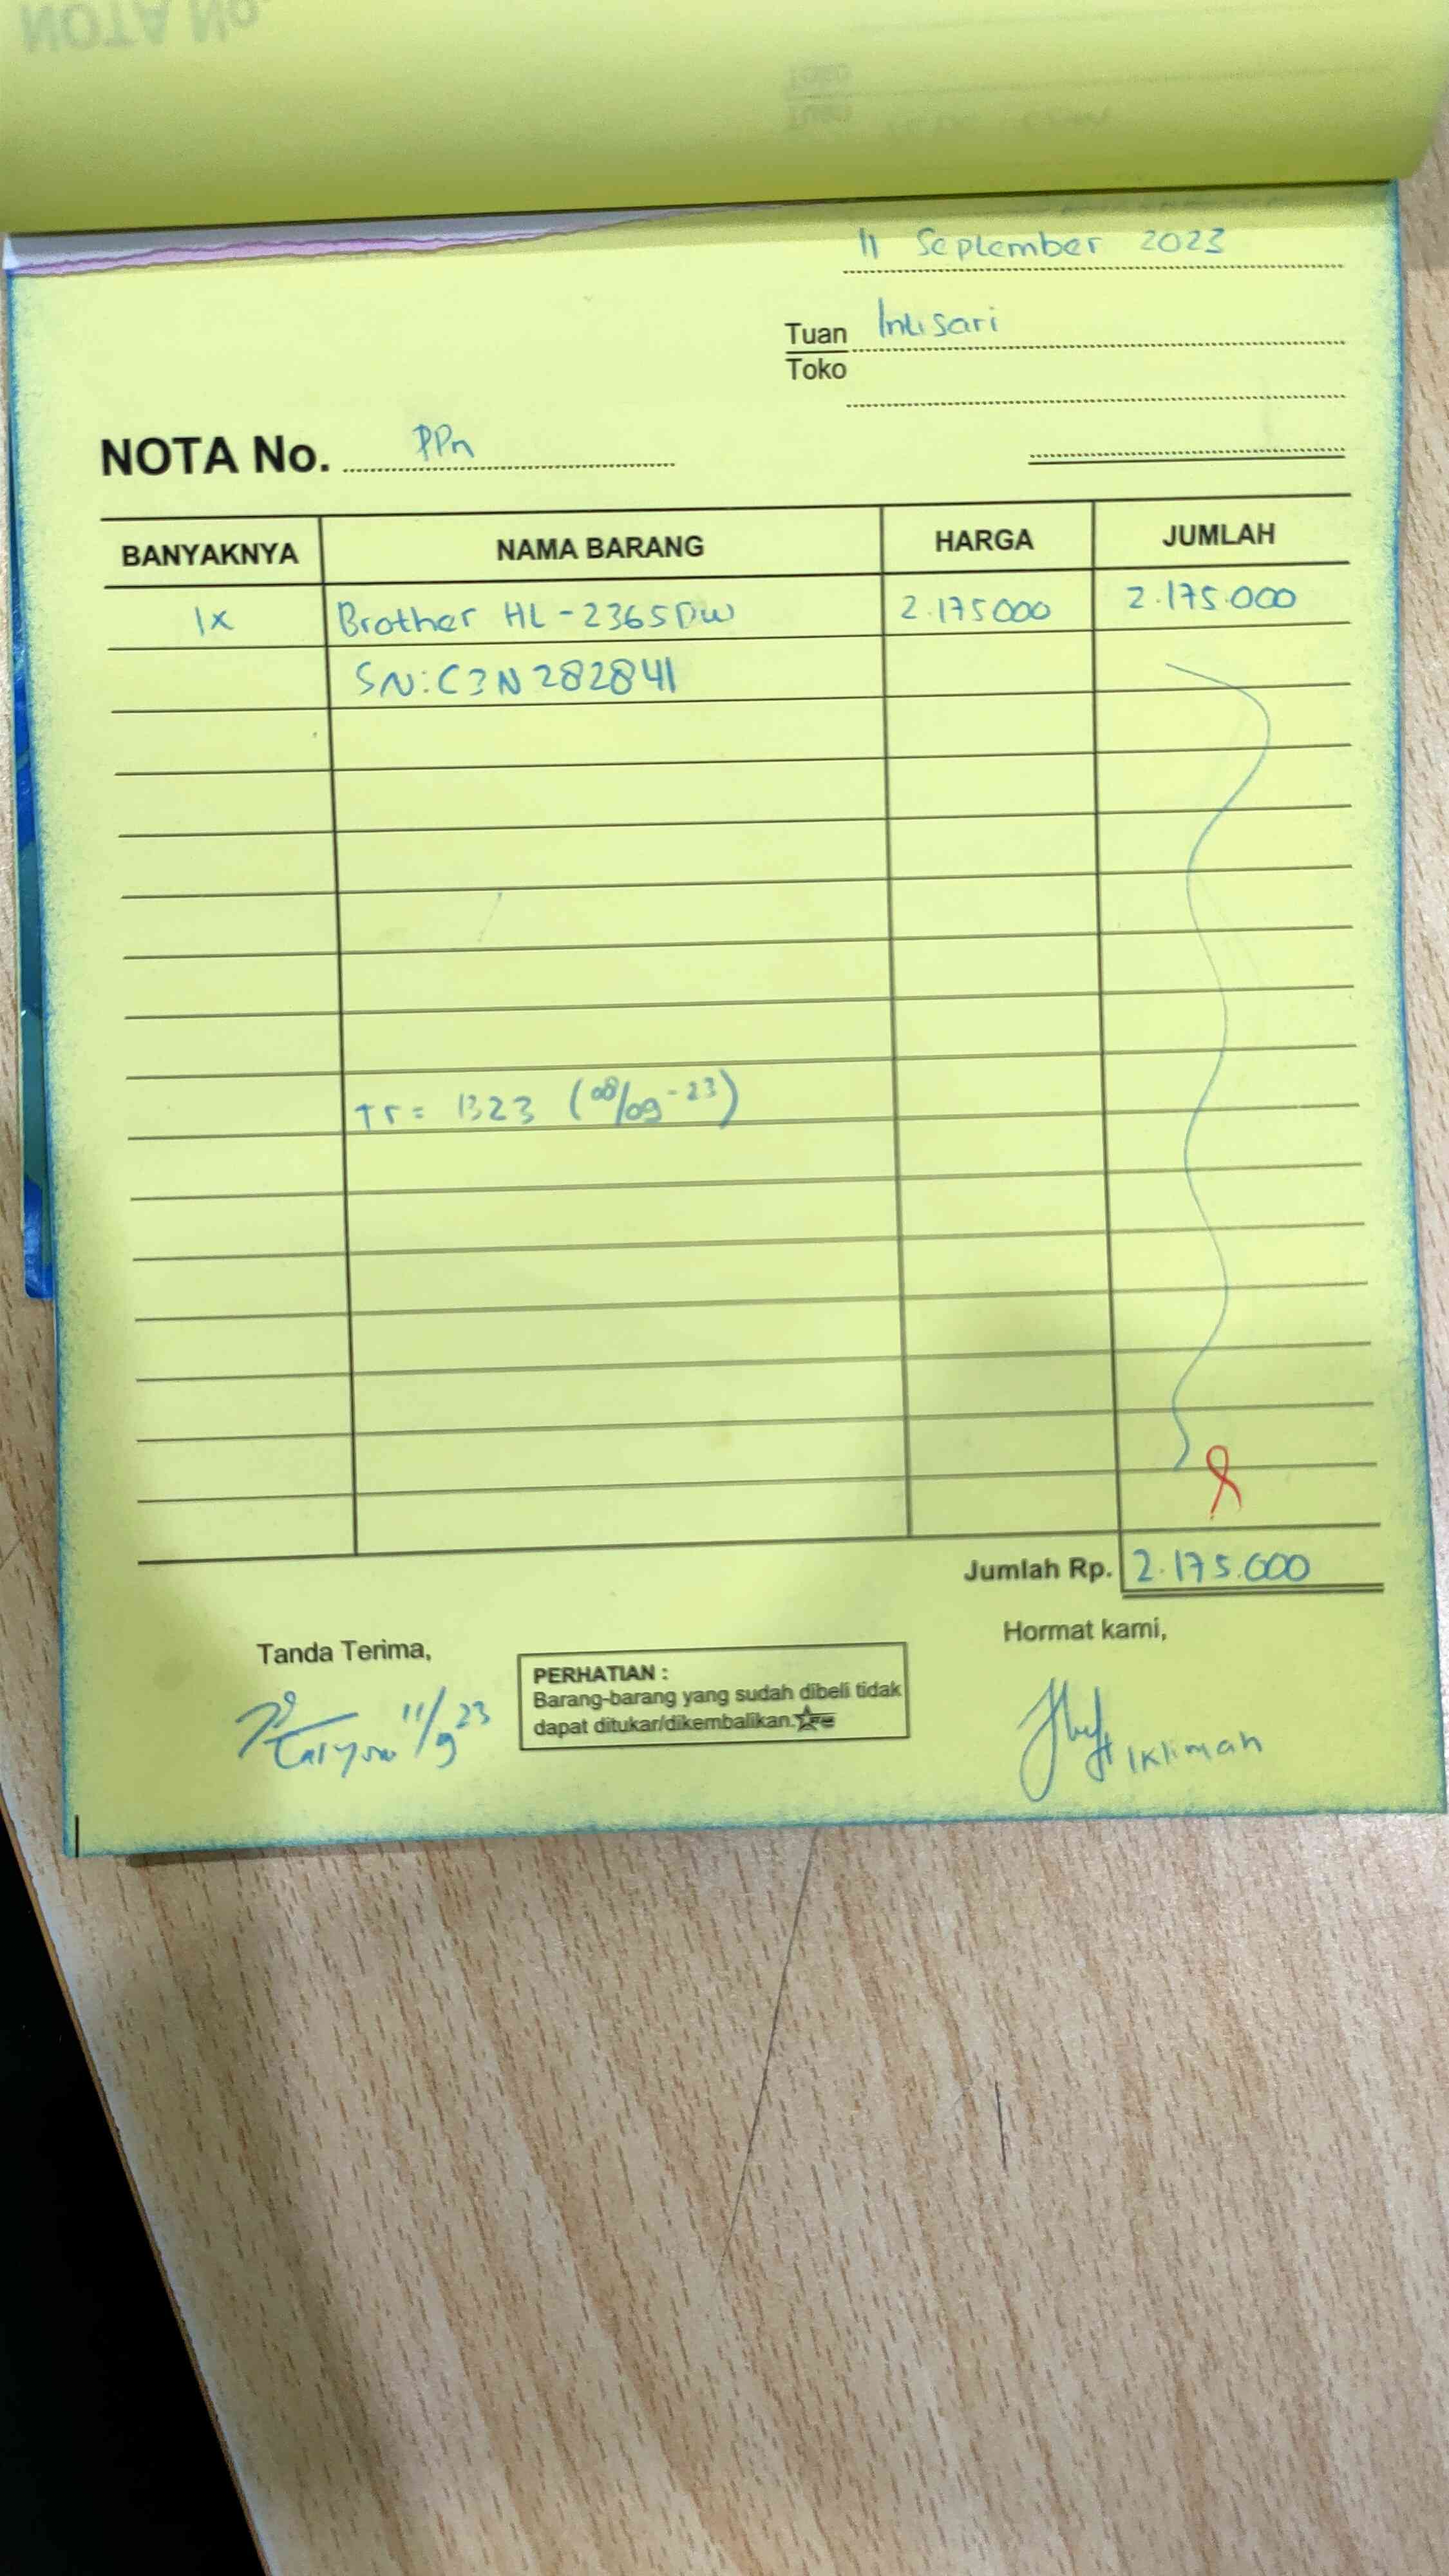 NOTA No.
Toko
Tuan
11 September 2023
Tuan Intisari
Toko
NOTA No. PPn
BANYAKNYA NAMA BARANG HARGA JUMLAH
1x Brother HL-2365DW 2.175000 2.175.000
SN: C3N282841
Tr = 1323 (08/09-23)
Jumlah Rp. 2.175.000
Tanda Terima, Hormat kami,
PERHATIAN :
Barang-barang yang sudah dibeli tidak
dapat ditukar/dikembalikan.
11/9 23
Ikliman